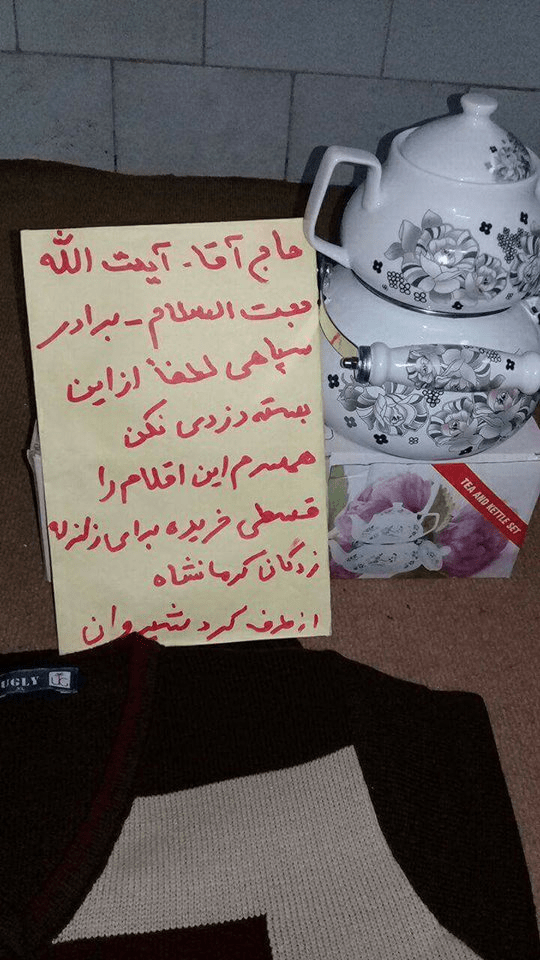 حاج آقا - آیت الله
حجت السلام - برادر
سپاهی لطفاً از این
بسته دزدی نکن
همسرم این اقلام را
قسطی خریده برای زلزله
زدگان کرمانشاه
از طرف کرد شیروان
TEA AND KETTLE SET
UGLY
XL